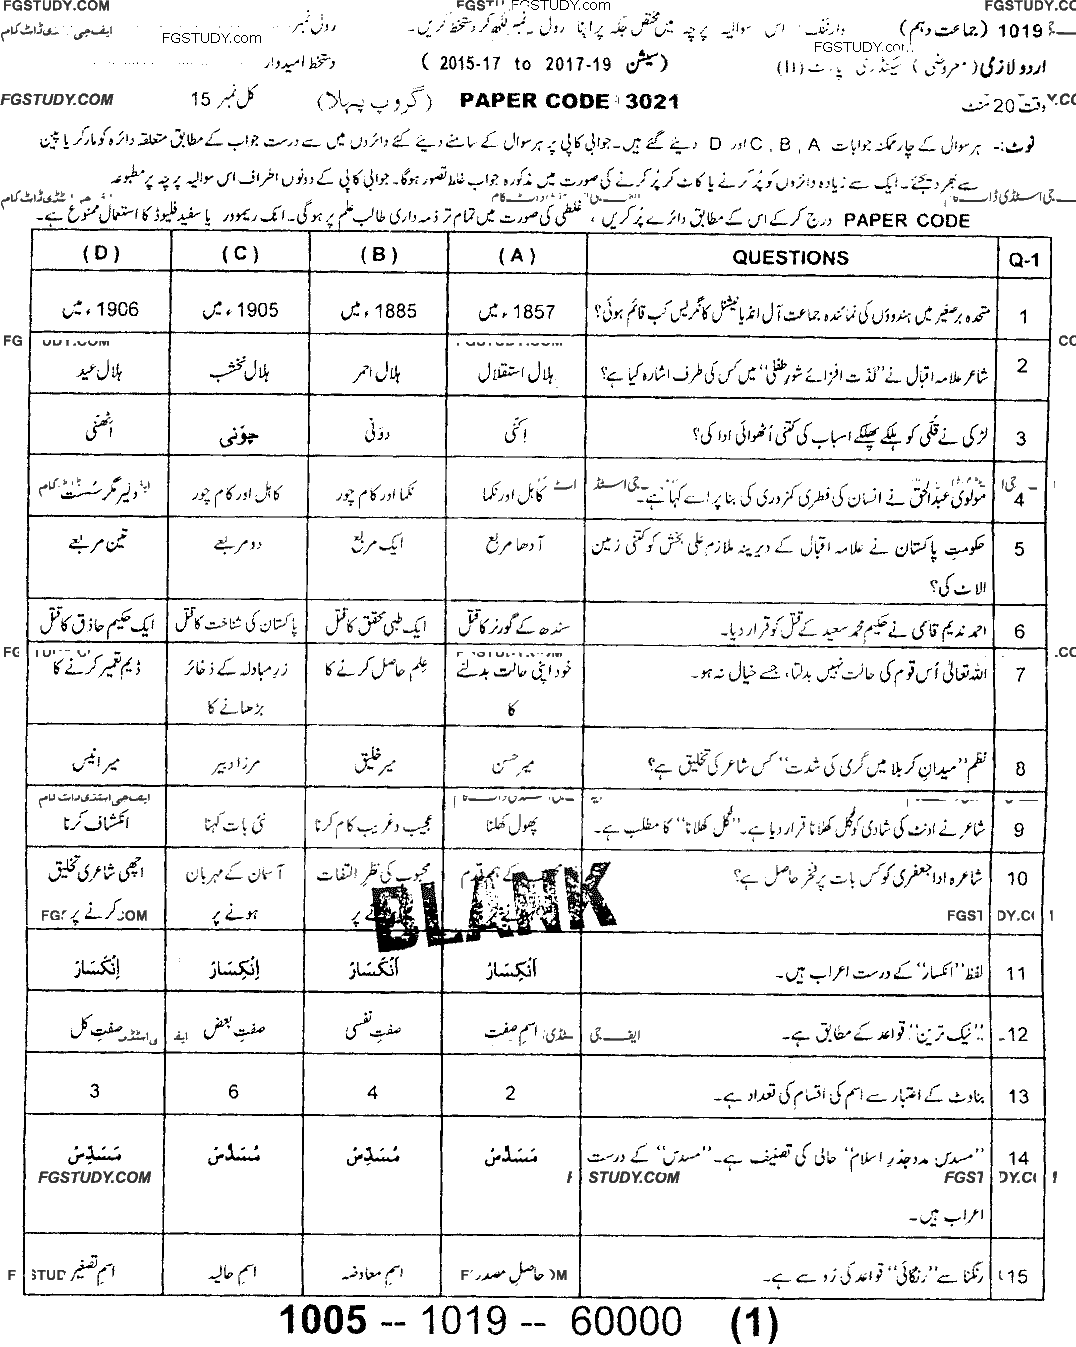 FGSTUDY.COM FGSTUDY.COM FGSTUDY.CO
1019 (جماعت دہم) اس سوالیہ پرچہ میں مختص جگہ پر اپنا رولی نمبر لکھ کر دستخط کریں۔ رولی نمبر ایف جی ڈاٹ کام
FGSTUDY.com FGSTUDY.co
اردو لازمی (معروضی) (سیشن 2015-17 to 2017-19) دستخط امیدوار
وقت 20 منٹ PAPER CODE 3021 (گروپ پہلا) کل نمبر 15 FGSTUDY.COM
نوٹ:۔ ہر سوال کے چار ممکنہ جوابات A ، B ، C اور D دیئے گئے ہیں۔ جوابی کاپی پر ہر سوال کے سامنے دیئے گئے دائروں میں سے درست جواب کے مطابق متعلقہ دائرہ کو مارکر یا پین
سے بھر دیجئے۔ ایک سے زیادہ دائروں کو پُر کرنے یا کاٹ کر پُر کرنے کی صورت میں مذکورہ جواب غلط تصور ہوگا۔ جوابی کاپی کے دونوں اطراف اس سوالیہ پرچہ پر مطبوعہ
PAPER CODE درج کر کے اس کے مطابق دائرے پُر کریں ، غلطی کی صورت میں تمام تر ذمہ داری طالب علم پر ہوگی۔ انک ریموور یا سفید فلیوڈ کا استعمال ممنوع ہے۔
Q-1 QUESTIONS (A) (B) (C) (D)
1 متحدہ برصغیر میں ہندوؤں کی نمائندہ جماعت آل انڈیا نیشنل کانگریس کب قائم ہوئی؟ 1857ء میں 1885ء میں 1905ء میں 1906ء میں
2 شاعر علامہ اقبال نے "لذت افزائے شورِ طفلی" میں کس کی طرف اشارہ کیا ہے؟ ہلال استقلال ہلال احمر ہلال نخشب ہلال عید
3 لڑکی نے قلّی کو ہلکے پھلکے اسباب کی کتنی اُٹھوائی ادا کی؟ اِکنّی دونّی چونّی اٹھنّی
4 مولوی عبدالحق نے انسان کی فطری کمزوری کی بنا پر اسے کہا ہے۔ کاہل اور نکما نکما اور کام چور کاہل اور کام چور دلیر مگر سُست
5 حکومتِ پاکستان نے علامہ اقبال کے دیرینہ ملازم علی بخش کو کتنی زمین آدھا مربع ایک مربع دو مربعے تین مربعے
الاٹ کی؟
6 احمد ندیم قاسمی نے حکیم محمد سعید کے قتل کو قرار دیا۔ سندھ کے گورنر کا قتل ایک طبی محقق کا قتل پاکستان کی شناخت کا قتل ایک حکیم حاذق کا قتل
7 اللہ تعالیٰ اُس قوم کی حالت نہیں بدلتا، جسے خیال نہ ہو۔ خود اپنی حالت بدلنے علم حاصل کرنے کا زرِ مبادلہ کے ذخائر ڈیم تعمیر کرنے کا
کا بڑھانے کا
8 نظم "میدانِ کربلا میں گرمی کی شدت" کس شاعر کی تخلیق ہے؟ میر حسن میر خلیق مرزا دبیر میر انیس
9 شاعر نے اونٹ کی شادی کو گل کھلانا قرار دیا ہے۔ "گل کھلانا" کا مطلب ہے۔ پھول کھلنا عجیب و غریب کام کرنا نئی بات کہنا انکشاف کرنا
10 شاعرہ ادا جعفری کو کس بات پر فخر حاصل ہے؟ کے ہم قدم محبوب کی نظرِ التفات آسان کے مہربان اچھی شاعری تخلیق
ہونے پر کرنے پر
BLANK
11 لفظ "انکسار" کے درست اعراب ہیں۔ اَنکِسَارْ اَنْکَسَارْ اِنْکِسَارْ اِنْکَسَارْ
12 "نیک ترین" قواعد کے مطابق ہے۔ اسمِ صفت صفتِ نفسی صفتِ بعض صفتِ کل
13 بناوٹ کے اعتبار سے اسم کی اقسام کی تعداد ہے۔ 2 4 6 3
14 "مسدس مدوجذرِ اسلام" حالی کی تصنیف ہے۔ "مسدس" کے درست مَسَدَّسْ مُسَدِّسْ مُسَدَّسْ مَسَدِّسْ
FGSTUDY.COM STUDY.COM
اعراب ہیں۔
15 رنگنا سے "رنگائی" قواعد کی رُو سے ہے۔ حاصل مصدر اسمِ معاوضہ اسمِ حالیہ اسمِ تصغیر
1005 -- 1019 -- 60000 (1)